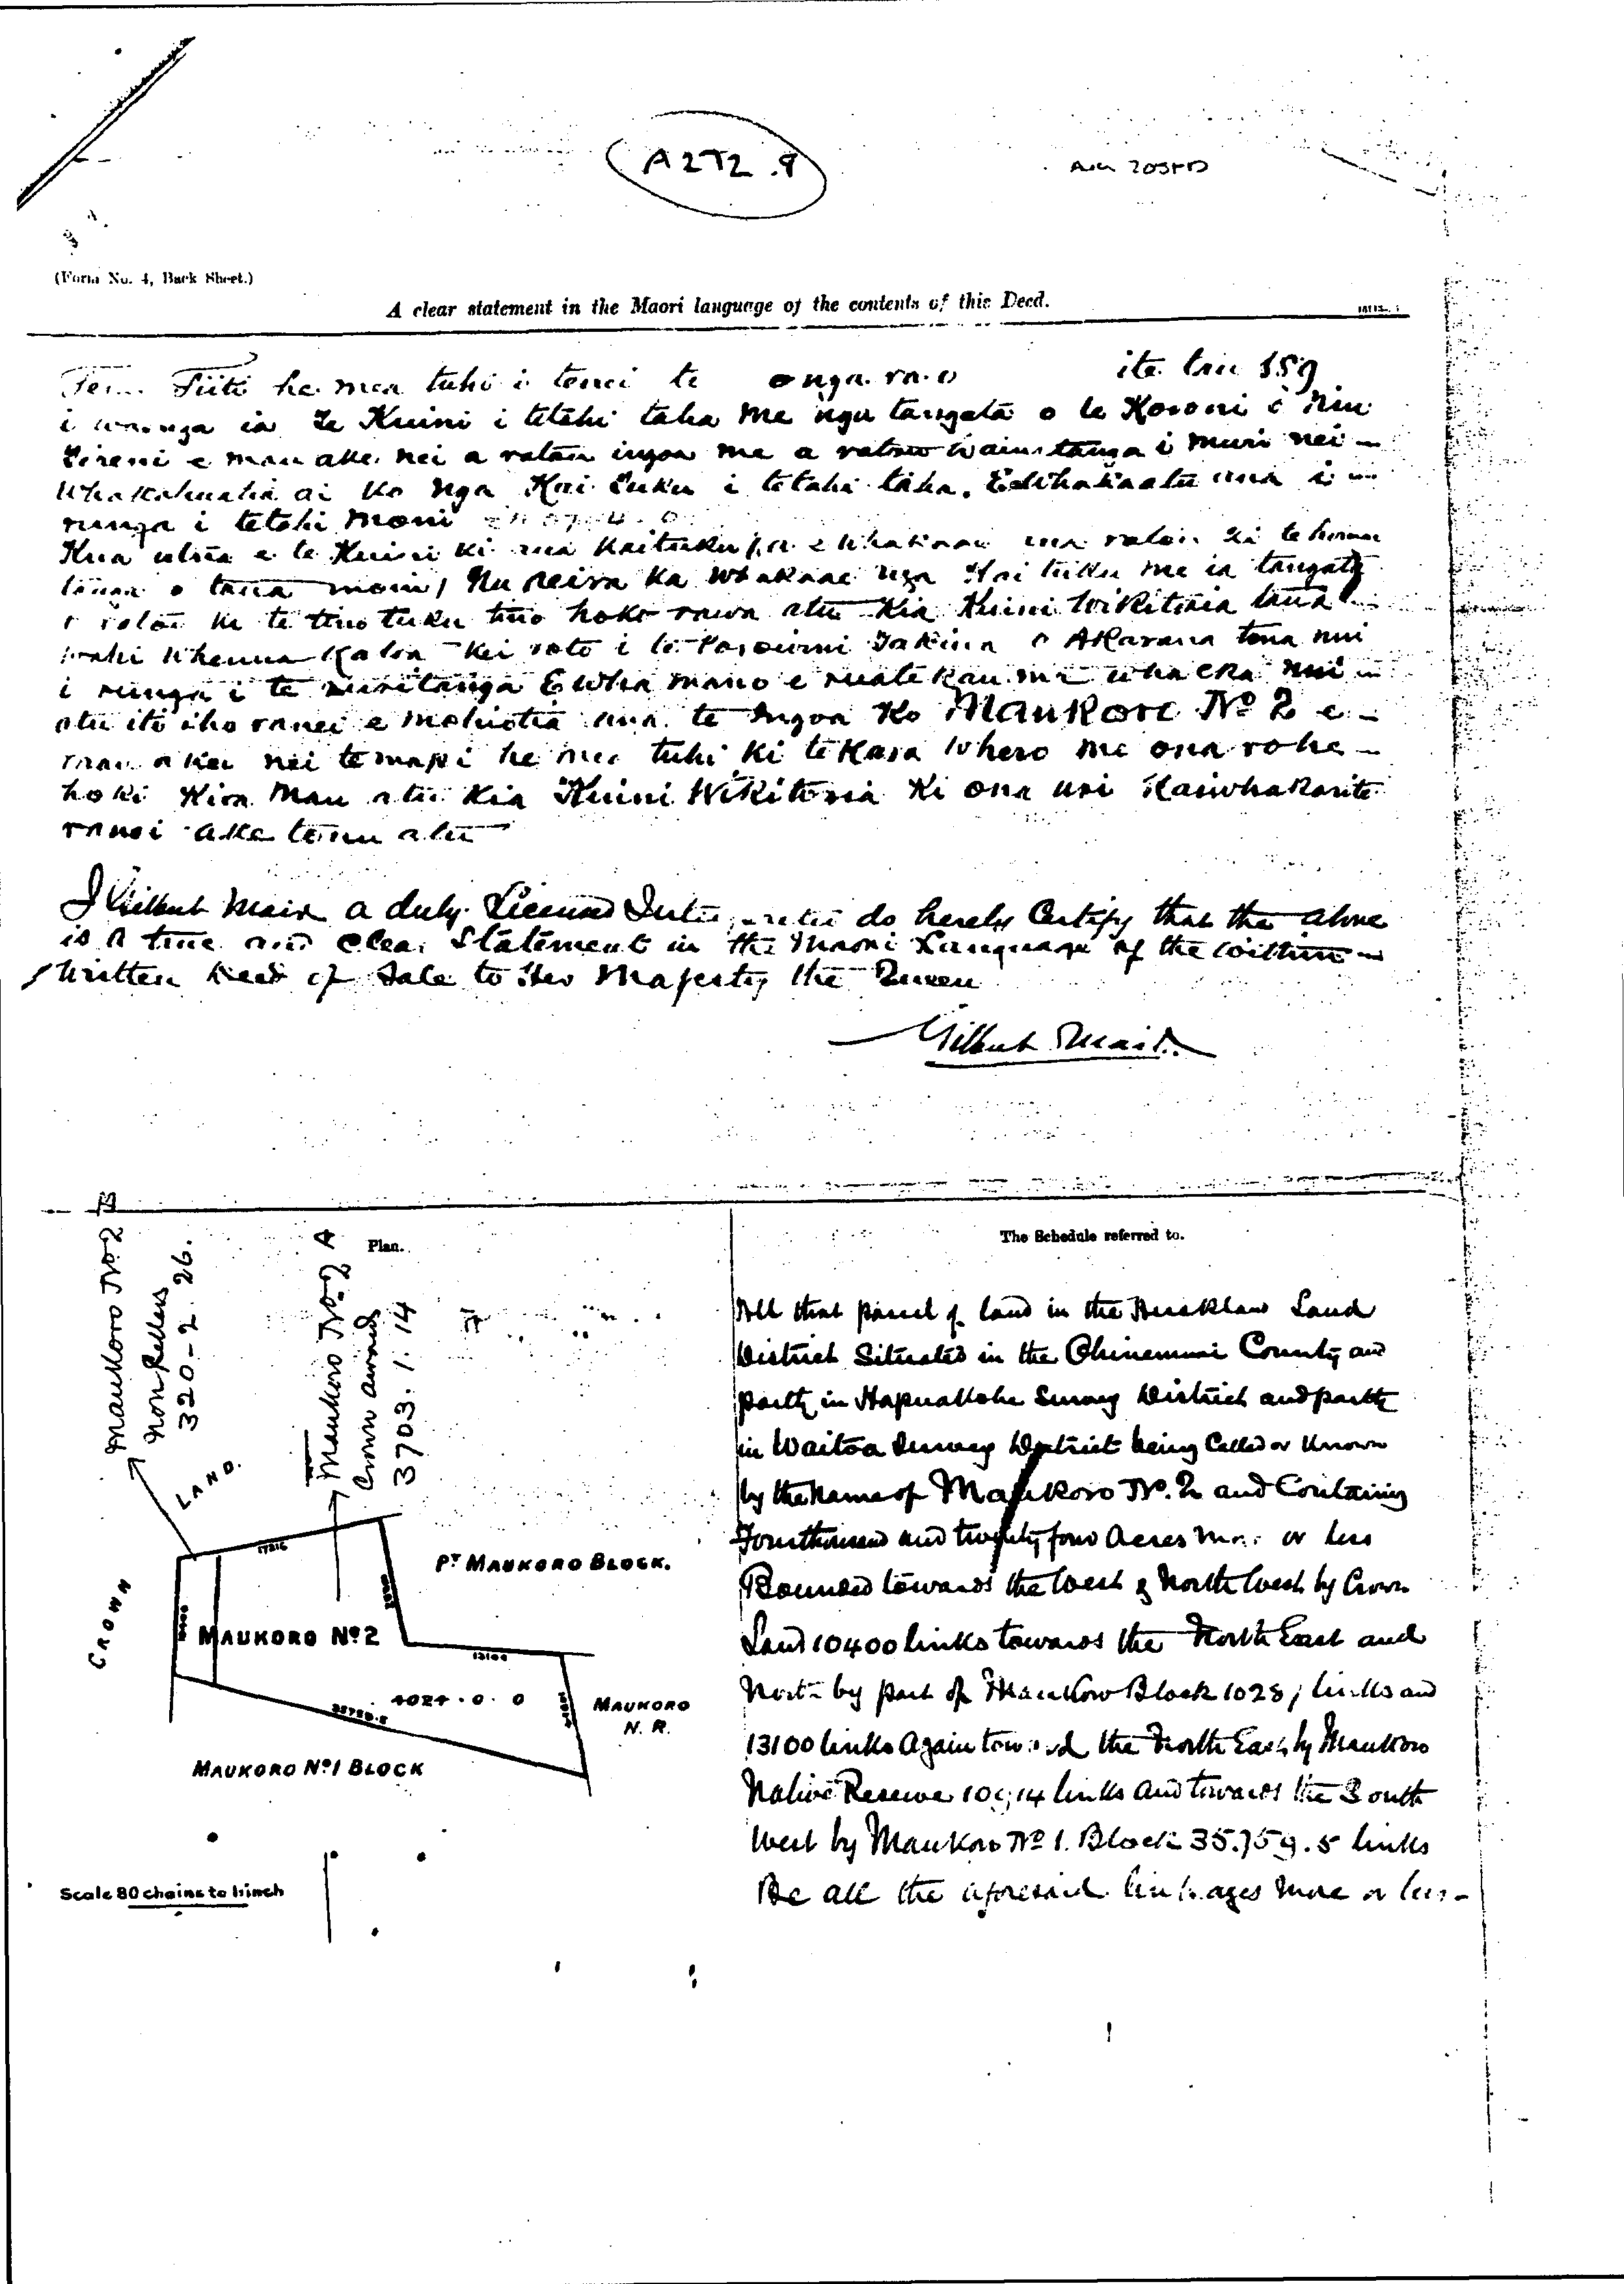 A2T2.8
(Form No. 4, Back Sheet.)
A clear statement in the Maori language of the contents of this Deed.
Tiiti he mea tuhi i tenei te o nga ra o ite tau 189
i waenga ia Te Kuini i tetehi taha me nga tangata o te Koroni o Niu
Tireni e mau ake nei a ratou ingoa me a ratou i muri nei
Whakahuatia ai ko nga Kai tuku i tetahi taha. E Whakaatu ana i
runga i tetehi moni
Kua utua e te Kuini ki aua Kaituku ratou ki te
o taua moni, Na reira ka whakaae nga Kai tuku me ia tangata
o ratou ki te tino tuku tino hoko rawa atu Kia Kuini Wikitoria taua
wahi Whenua Katoa Kei roto i te Takiwa o Akarana tona nui
i runga i te ruritanga E wha mano e ruatekau ma wha eka nui
atu iti iho ranei e mohiotia ana te Ingoa Ko Maukoro No 2 e
mau ake nei te mapi he mea tuhi ki te Kara Whero me ona rohe
hoki Kia Mau atu Kia Kuini Wikitoria Ki ona uri Kaiwhakarite
ranei ake tonu atu
I Gilbert Mair a duly Licensed Interpreter do hereby Certify that the above
is a true and Clear Statement in the Maori Language of the within
Written Deed of Sale to Her Majesty the Queen
Gilbert Mair.
Plan.
Maukoro No. 2
Non Sellers
320-2.26.
Maukoro No. 2 A
Crown award
3703.1.14
CROWN LAND.
PT MAUKORO BLOCK.
MAUKORO No 2
13100
4024.0.0
35759.5
MAUKORO
N. R.
MAUKORO No 1 BLOCK
Scale 80 chains to 1 inch
The Schedule referred to.
All that parcel of land in the Auckland Land
District Situated in the Ohinemuri County and
partly in Hapuakohe Survey District and partly
in Waitoa Survey District being Called or Known
by the Name of Maukoro No. 2 and Containing
Four thousand and twenty four Acres more or less
Bounded towards the West & North West by Crown
Land 10400 links towards the North East and
North by part of Maukoro Block links and
13100 links Again toward the North East by Maukoro
Native Reserve links and towards the South
West by Maukoro No 1. Block 35.759.5 links
Be all the aforesaid linkages more or less